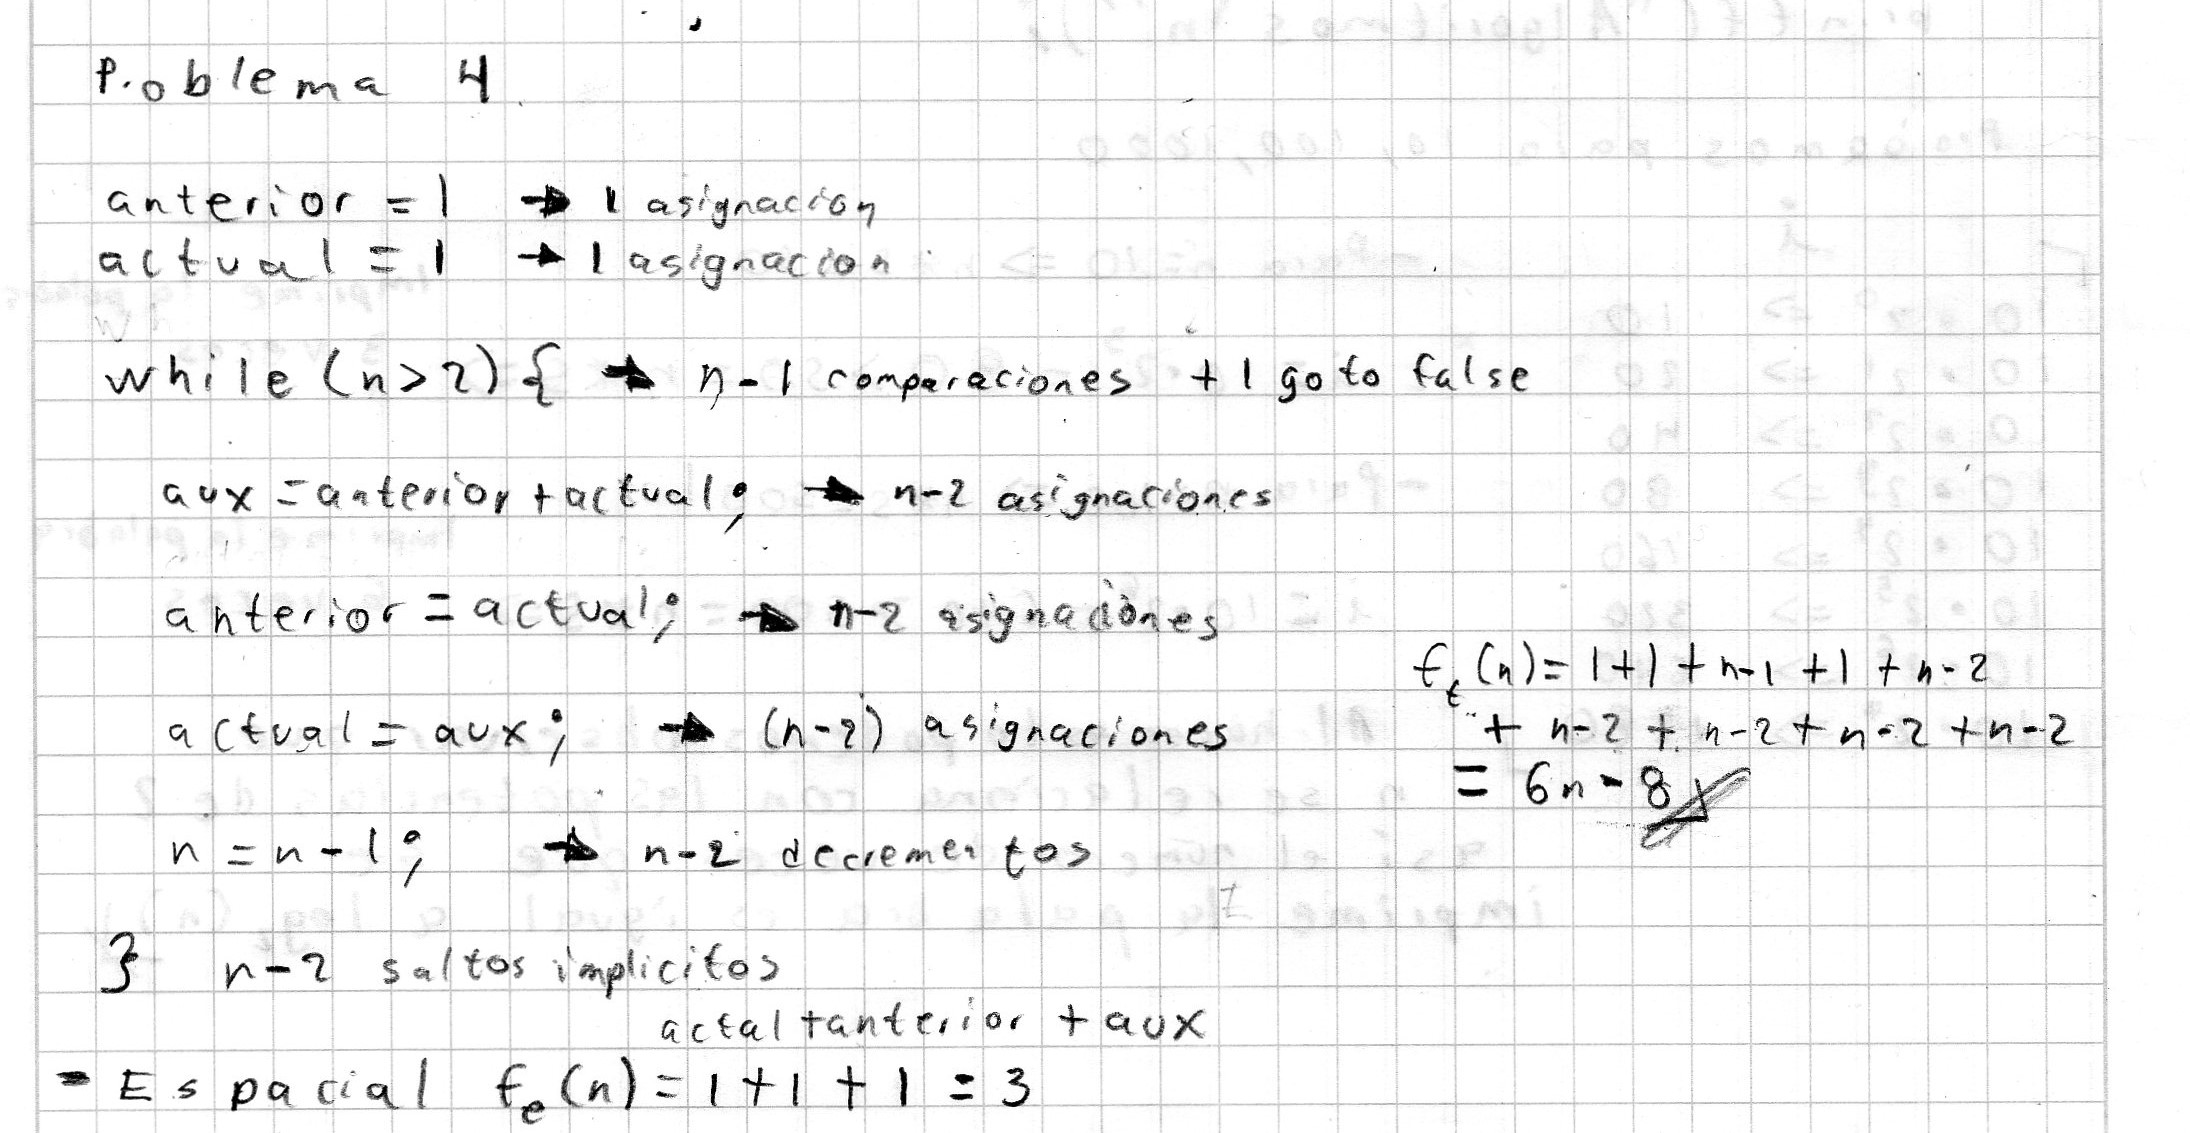 Problema 4
anterior = 1 → 1 asignacion
actual = 1 → 1 asignacion
while (n>2) { → n-1 comparaciones + 1 goto false
aux = anterior + actual; → n-2 asignaciones
anterior = actual; → n-2 asignaciones
actual = aux; → (n-2) asignaciones
n = n-1; → n-2 decrementos
} n-2 saltos implicitos
f_t(n) = 1+1+n-1+1+n-2
+ n-2 + n-2 + n-2 + n-2
= 6n-8
actal + anterior + aux
- Espacial f_e(n) = 1+1+1 = 3